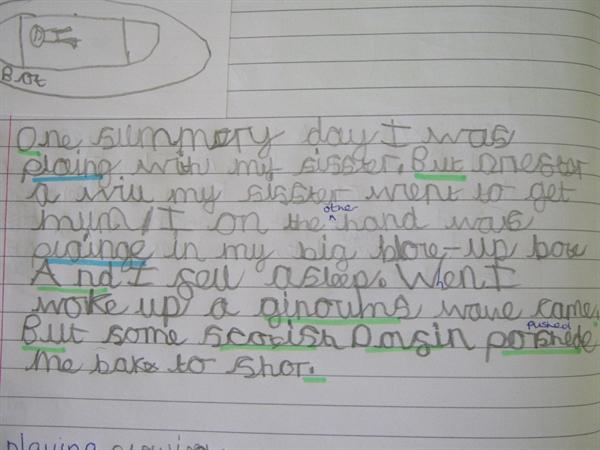 Boat
One summery day I was
plaing with my sisster. But onester
a wiu my sisster went to get
mum/I on the other hand was
plainge in my big blow-up bow
And I fell asleep. When I
woke up a ginoums wave came.
But some scotish Dorsin poshede pushed
me bake to shor.
playing